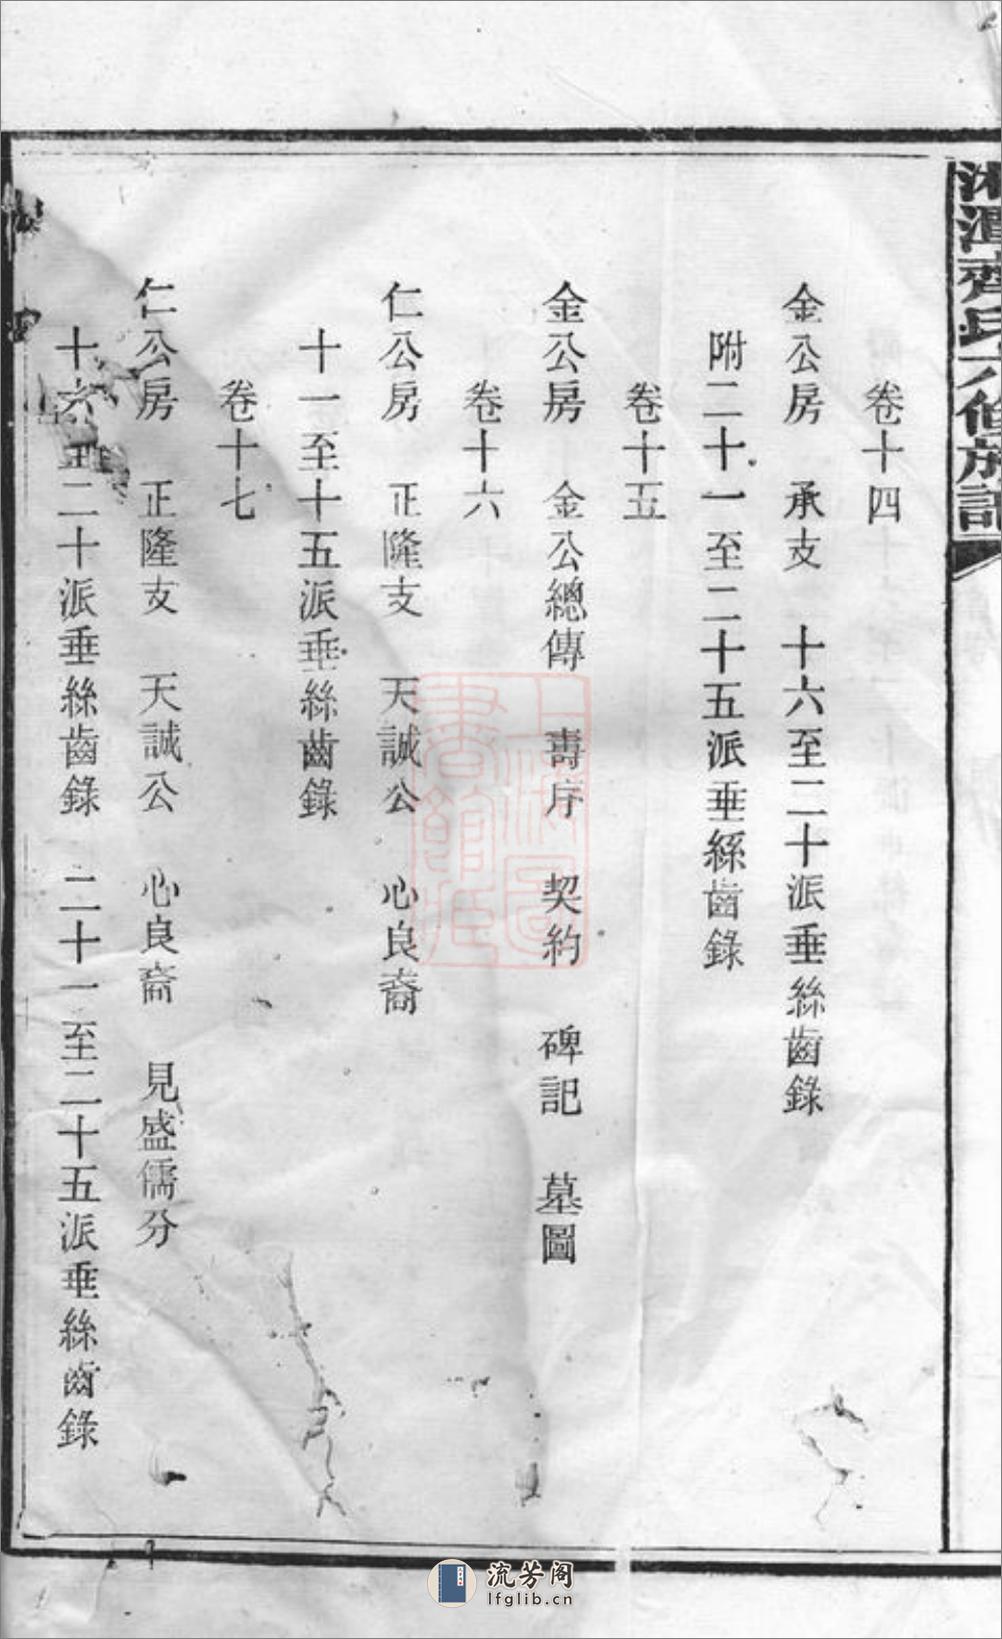 湘潭齊氏六修族譜
卷十四
金公房　承支　十六至二十派垂絲齒錄
附二十一至二十五派垂絲齒錄
卷十五
金公房　金公總傳　壽序　契約　碑記　墓圖
卷十六
仁公房　正隆支　天誠公　心良裔
十一至十五派垂絲齒錄
卷十七
仁公房　正隆支　天誠公　心良裔　見盛儒分
十六至二十派垂絲齒錄　二十一至二十五派垂絲齒錄
上海圖
書館藏
流芳阁
lfglib.cn